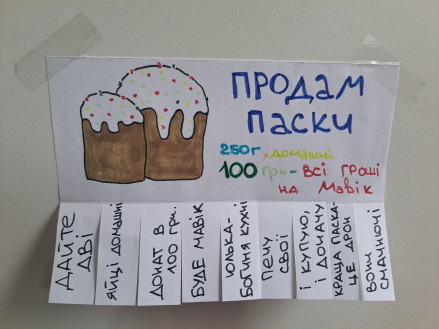 ПРОДАМ
ПАСКИ
250г, домашні
100 грн - всі гроші
на Мавік
ДАЙТЕ
ДВІ
ЯЙЦІ ДОМАШНІ
ДОНАТ В
100 ГРН.
БУДЕ МАВІК
ЮЛЬКА-
БОГИНЯ КУХНІ
ПЕЧУ
СВОЇ
І КУПУЮ,
І ДОНАЧУ
КРАЩА ПАСКА-
ЦЕ ДРОН
ВОНИ
СМАЧНЮЧІ